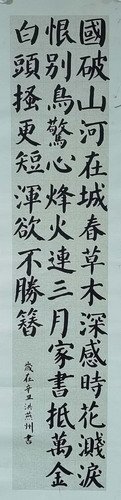 國破山河在城春草木深感時花濺淚
恨别鳥驚心烽火連三月家書抵萬金
白頭搔更短渾欲不勝簪
歲在辛丑洪燕州書